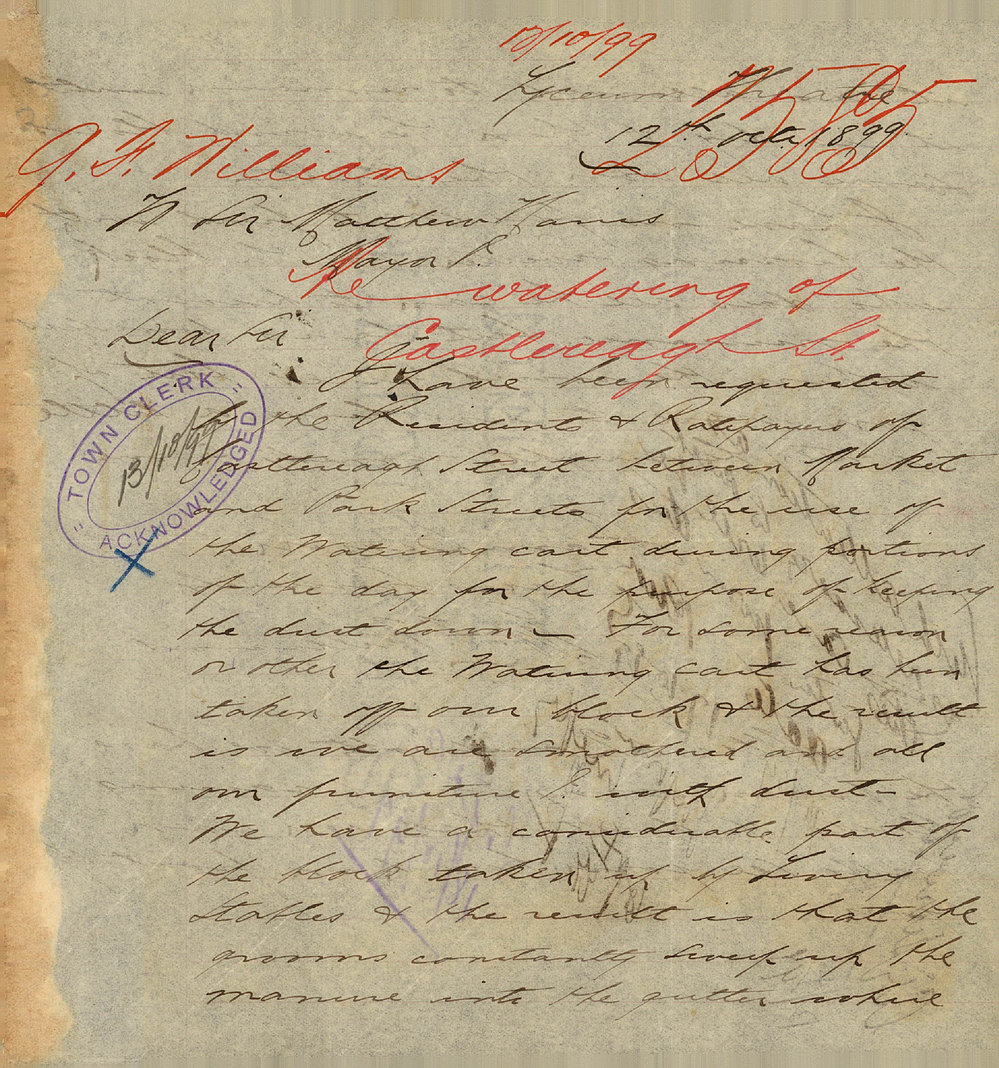 13/10/99
Lyceum Theatre
12th Oct. 1899
2585
G. F. Williams
To Sir Matthew Harris
Mayor &.
Re watering of
Castlereagh St.
Dear Sir
I have been requested
by the Residents & Ratepayers of
Castlereagh Street between Market
and Park Streets for the use of
the Watering cart during portions
of the day for the purpose of keeping
the dust down — For some reason
or other the Watering cart has been
taken off our block & the result
is we are smothered and all
our furniture &. with dust —
We have a considerable part of
the block taken up by Livery
Stables & the result is that the
grooms constantly sweep up the
manure into the gutter where
TOWN CLERK
13/10/99
ACKNOWLEDGED